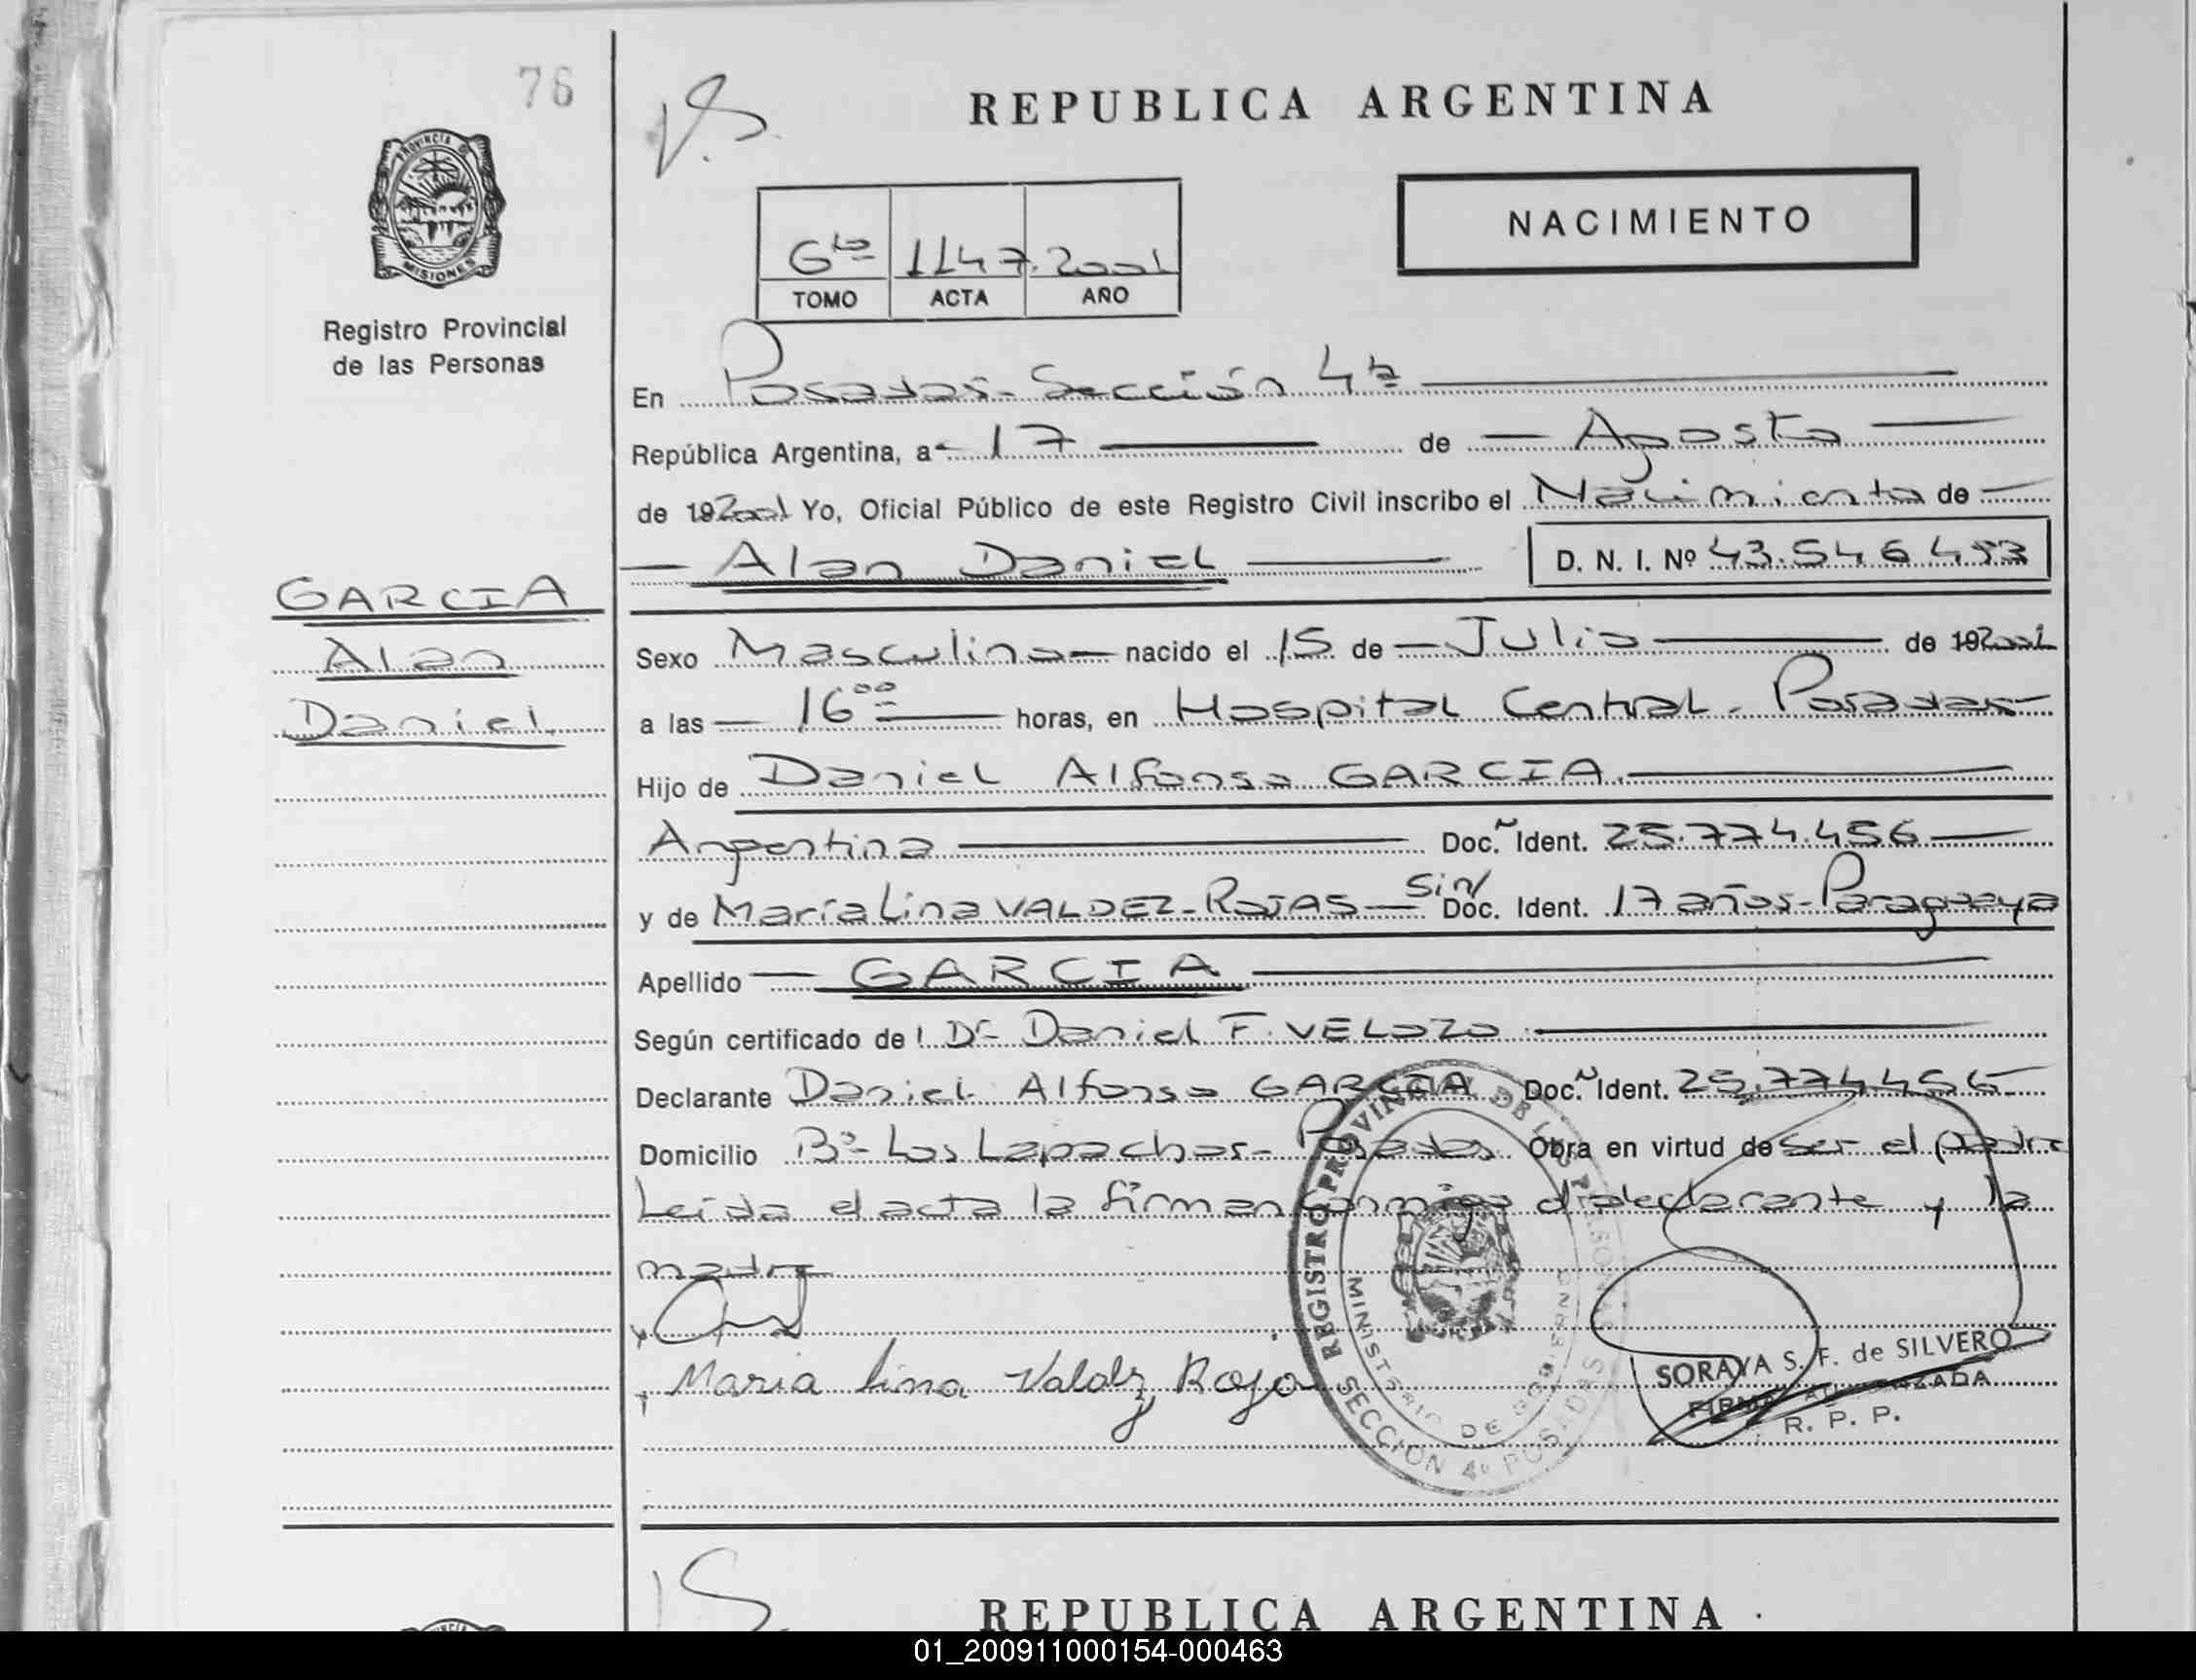 76
REPUBLICA ARGENTINA
PROVINCIA DE
MISIONES
Registro Provincial
de las Personas
NACIMIENTO
6to 1147. 2001
TOMO ACTA AÑO
En Posadas- Sección 4ta
República Argentina, a 17 de Agosto
de 192001 Yo, Oficial Público de este Registro Civil inscribo el Nacimiento de
Alan Daniel D. N. I. Nº 43.546.453
GARCIA
Alan
Daniel
Sexo Masculino nacido el 15 de Julio de 192001
a las 16 00 horas, en Hospital Central - Posadas
Hijo de Daniel Alfonso GARCIA
Argentina Doc. Ident. 25.774.456
y de María Lina VALDEZ - ROJAS Sin/ Doc. Ident. 17 años - Paraguaya
Apellido GARCIA
Según certificado de Dr Daniel F. VELOZO
Declarante Daniel Alfonso GARCIA Doc. Ident. 25.774.456
Domicilio Bº Los Lapachos - Posadas Obra en virtud de ser el padre
Leída el acta la firman conmigo el declarante y la
madre
Maria Lina Valdz Roja
REGISTRO PROVINCIAL DE LAS PERSONAS
MINISTERIO DE GOBIERNO
SECCION 4º POSADAS
SORAYA S. F. de SILVERO
FIRMA AUTORIZADA
R. P. P.
REPUBLICA ARGENTINA
01_200911000154-000463